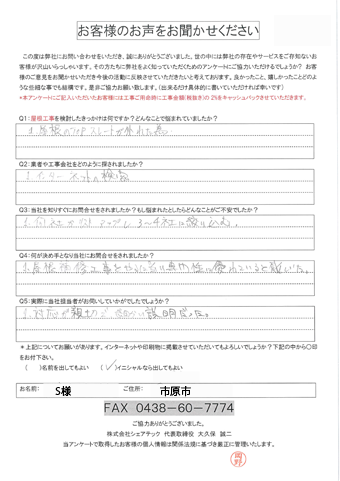 お客様のお声をお聞かせください
この度は弊社にお問い合わせをいただき、誠にありがとうございました。世の中には弊社の存在やサービスをご存知ないお
客様が沢山いらっしゃいます。その方たちに弊社をよく知っていただくためのアンケートにご協力いただけるでしょうか？ お客
様のご意見をお聞かせいただき今後の活動に反映させていただきたいと考えております。良かったこと、嬉しかったことどのよ
うな些細な事でも結構です。是非ご協力お願い致します。（出来るだけ具体的に書いていただければ幸いです）
*本アンケートにご記入いただいたお客様には工事ご用命時に工事金額（税抜き）の 2%をキャッシュバックさせていただきます。
Q1：屋根工事を検討したきっかけは何ですか？どんなことで悩まれていましたか？
1.屋根のスレートが外れた為
Q2：業者や工事会社をどのように探されましたか？
1.インターネットの検索
Q3：当社を知りすぐにお問合せをされましたか？もし悩まれたとしたらどんなことがご不安でしたか？
3～4社に絞り込む。
Q4：何が決め手となり当社にお問合せをされましたか？
1.屋根補修工事を 専門性に優れていると感じた。
Q5：実際に当社担当者がお伺いしていかがでしたでしょうか？
1.対応が親切で 説明だった。
＊上記についてお願いがあります。インターネットや印刷物に掲載させていただいてもよろしいでしょうか？下記の中から〇印
をお付下さい。
（　）名前を出してもよい　（✓）イニシャルなら出してもよい
お名前：　S様　ご住所：　市原市
FAX 0438-60-7774
ご協力ありがとうございました。
株式会社シェアテック 代表取締役 大久保 誠二
当アンケートで取得したお客様の個人情報は関係法規に基づき厳正に管理いたします。